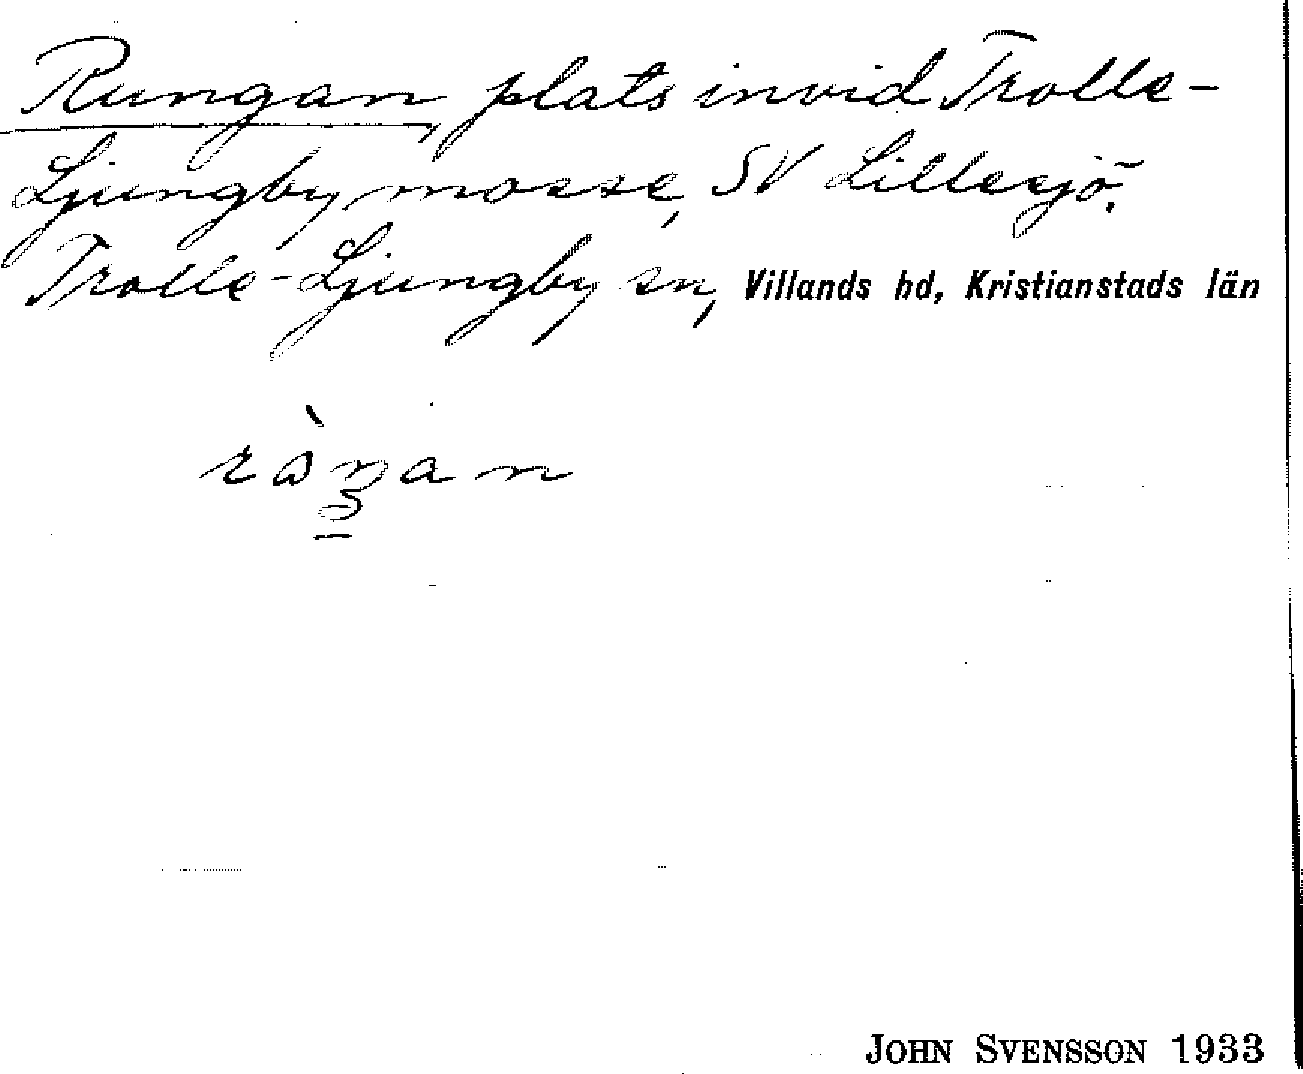 Rungan, plats invid Trolle-
Ljungby mosse, SV Lillesjö.
Trolle-Ljungby sn, Villands hd, Kristianstads län
JOHN SVENSSON 1933